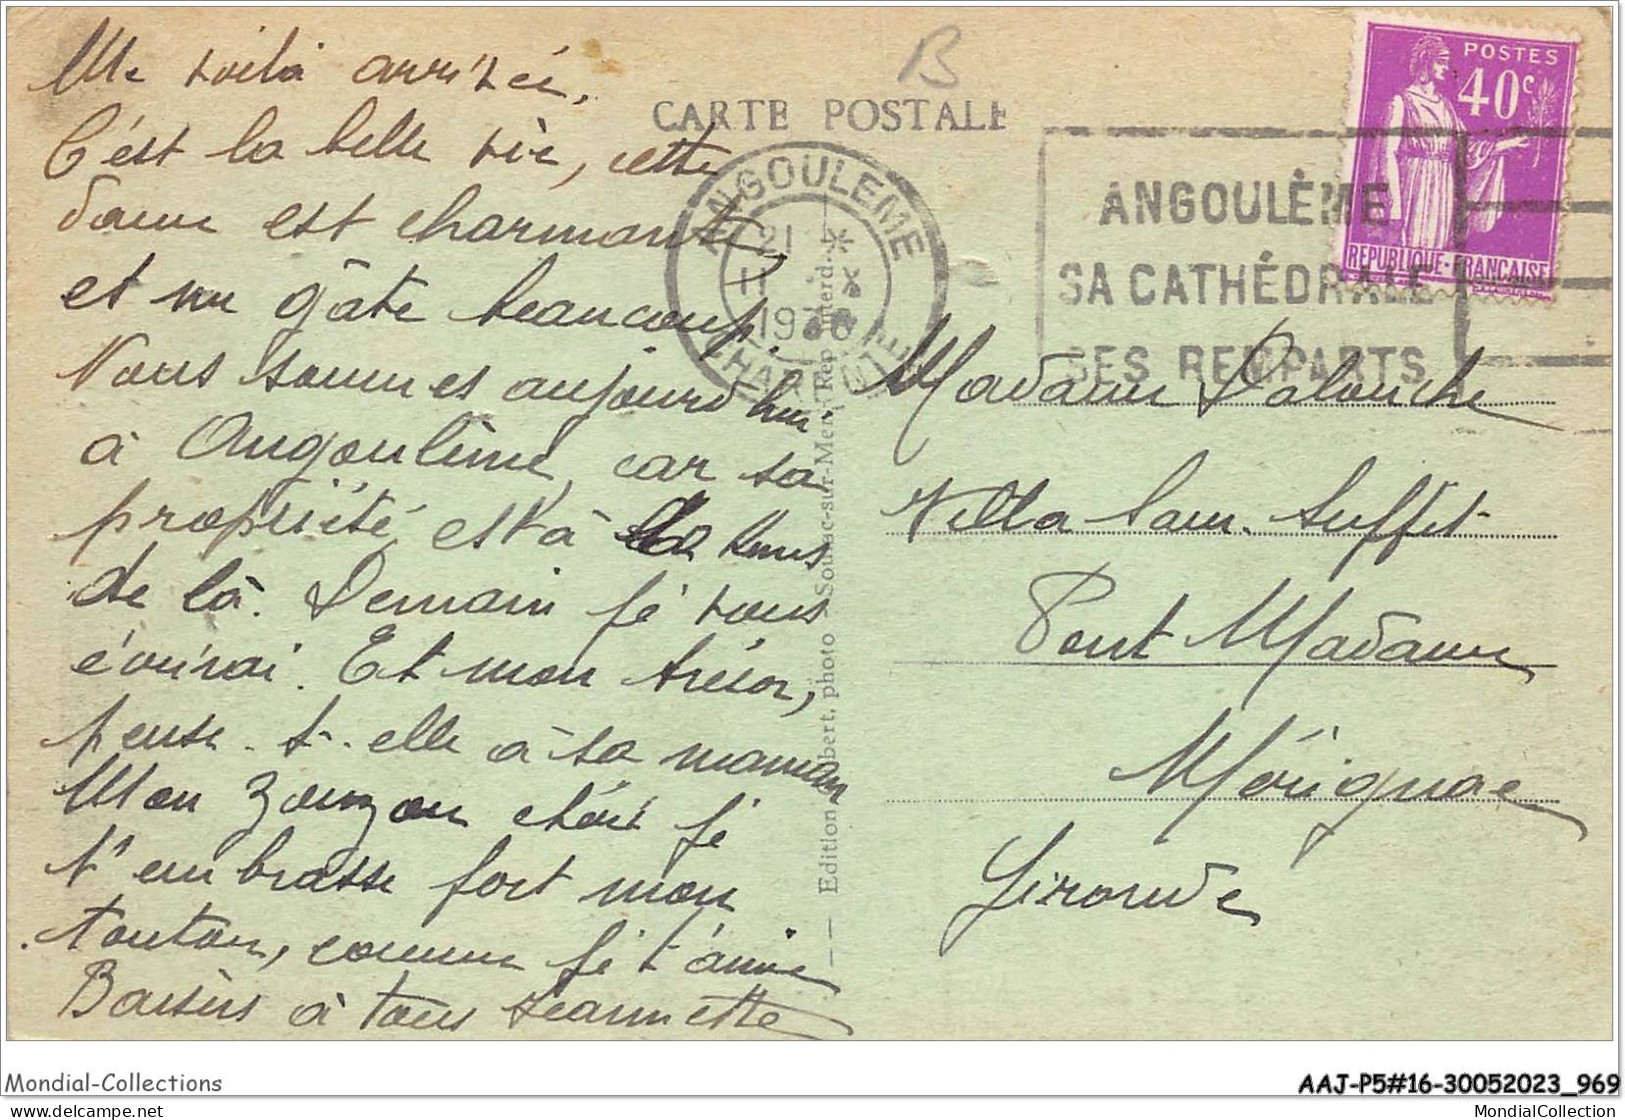 Me voilà arrivée,
C'est la belle vie, cette
dame est charmante
et me gâte beaucoup.
Nous sommes aujourd'hui
à Angoulême, car sa
propriété est à la kms
de là. Demain je vous
écrirai. Et mon trésor,
pense-t-elle à sa maman
Mon zouzou chéri je
t'embrasse fort mon
touton, comme je t'aime
Baisers à tous Jeannette
B
CARTE POSTALE
ANGOULEME
21 *
11 X
CHARENTE
ANGOULÊME
SA CATHÉDRALE
SES REMPARTS
POSTES
40c
REPUBLIQUE-FRANCAISE
Madame Dalouche
Villa Sam-Suffit
Pont Madame
Mérignac
Gironde
Edition photo Soulac-sur-Mer
Mondial-Collections
AAJ-P5#16-30052023_969
delcampe.net
MondialCollection